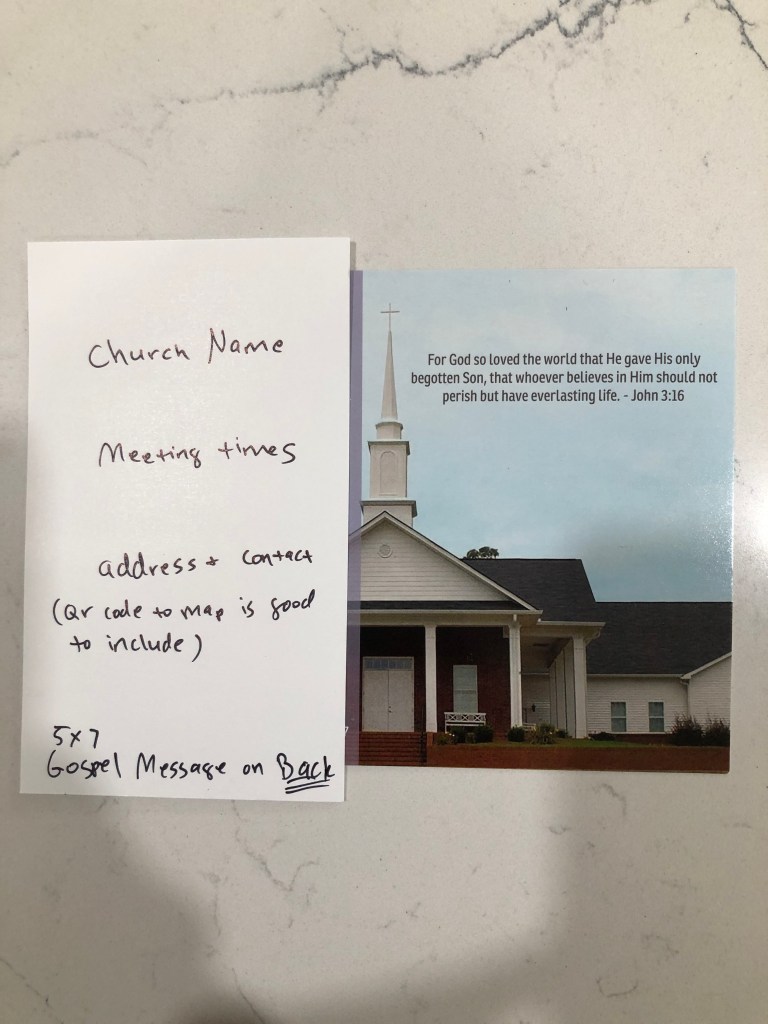 Church Name
Meeting times
address + contact
(Qr code to map is good
to include)
5x7
Gospel Message on Back
For God so loved the world that He gave His only
begotten Son, that whoever believes in Him should not
perish but have everlasting life. - John 3:16